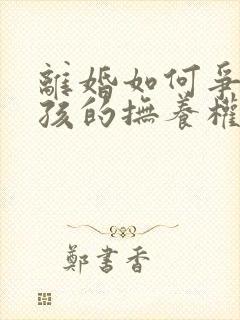 離婚如何爭
孩的撫養權
鄭書香